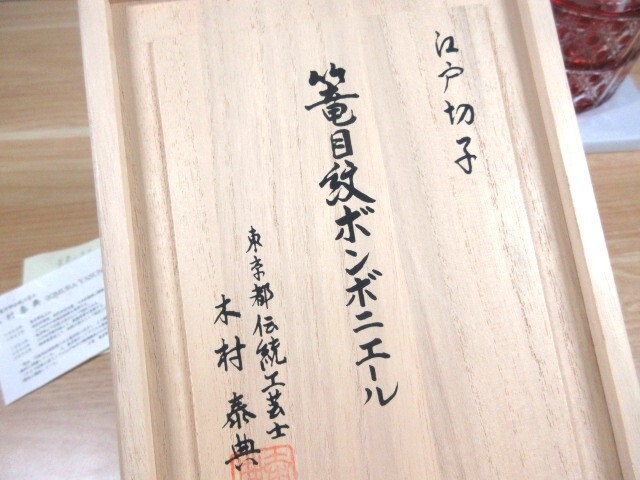 江戸切子
篭目紋ボンボニエール
東京都伝統工芸士
木村泰典